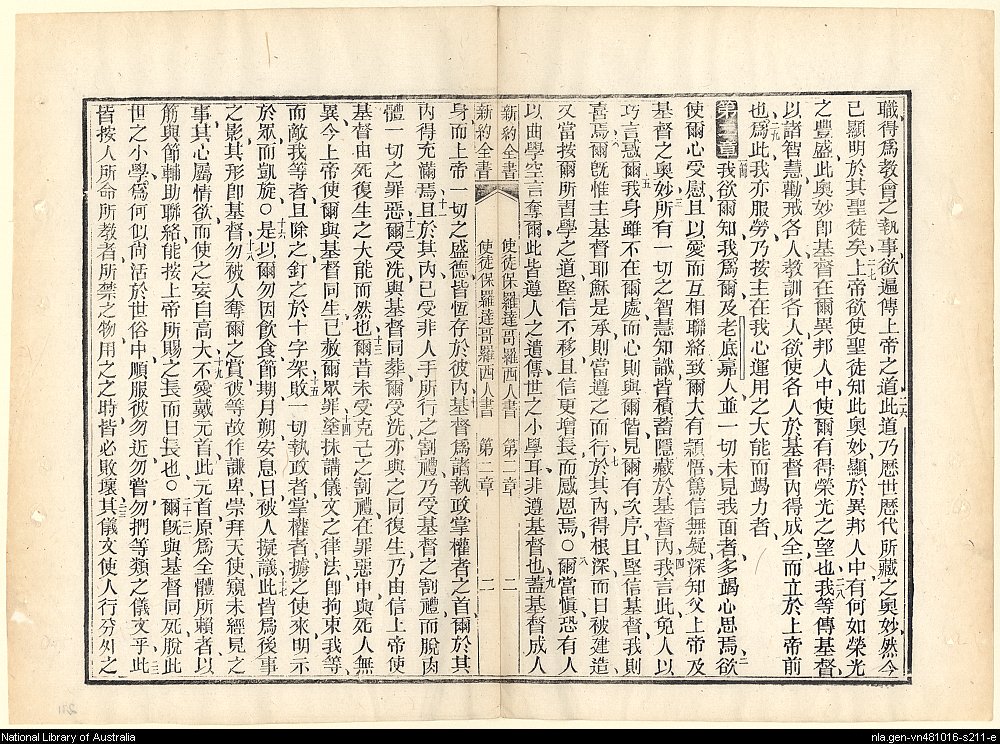 職得爲教會之執事欲遍傳上帝之道此道乃歷世歷代所藏之奧妙然今
已顯明於其聖徒矣上帝欲使聖徒知此奧妙顯於異邦人中有何如榮光
之豐盛此奧妙卽基督在爾異邦人中使爾有得榮光之望也我等傳基督
以諸智慧勸戒各人教訓各人欲使各人於基督內得成全而立於上帝前
也爲此我亦服勞乃按主在我心運用之大能而竭力者
第二章 我欲爾知我爲爾及老底嘉人並一切未見我面者多竭心思焉欲
使爾心受慰且以愛而互相聯絡致爾大有穎悟篤信無疑深知父上帝及
基督之奧妙所有一切之智慧知識皆積蓄隱藏於基督內我言此免人以
巧言惑爾我身雖不在爾處而心則與爾偕見爾有次序且堅信基督我則
喜焉爾旣惟主基督耶穌是承則當遵之而行於其內得根深而日被建造
又當按爾所習學之道堅信不移且信更增長而感恩焉〇爾當愼恐有人
以曲學空言奪爾此皆遵人之遺傳世之小學耳非遵基督也蓋基督成人
新約全書 使徒保羅達哥羅西人書 第二章 二
新約全書 使徒保羅達哥羅西人書 第二章 二
身而上帝一切之盛德皆恆存於彼內基督爲諸執政掌權者之首爾於其
內得充滿焉且於其內已受非人手所行之割禮乃受基督之割禮而脫肉
體一切之罪惡爾受洗與基督同葬爾受洗亦與之同復生乃由信上帝使
基督由死復生之大能而然也爾昔未受克己之割禮在罪惡中與死人無
異今上帝使爾與基督同生已赦爾眾罪塗抹講儀文之律法卽拘束我等
而敵我等者且除之釘之於十字架敗一切執政者掌權者擄之使來明示
於眾而凱旋〇是以爾勿因飲食節期月朔安息日被人擬議此皆爲後事
之影其形卽基督勿被人奪爾之賞彼等故作謙卑崇拜天使窺未經見之
事其心屬情欲而使之妄自高大不愛戴元首此元首原爲全體所賴者以
筋與節輔助聯絡能按上帝所賜之長而日長也〇爾旣與基督同死脫此
世之小學爲何似尙活於世俗中順服彼勿近勿嘗勿捫等類之儀文乎此
皆按人所命所教者所禁之物用之之時皆必敗壞其儀文使人行分外之
National Library of Australia
nla.gen-vn481016-s211-e